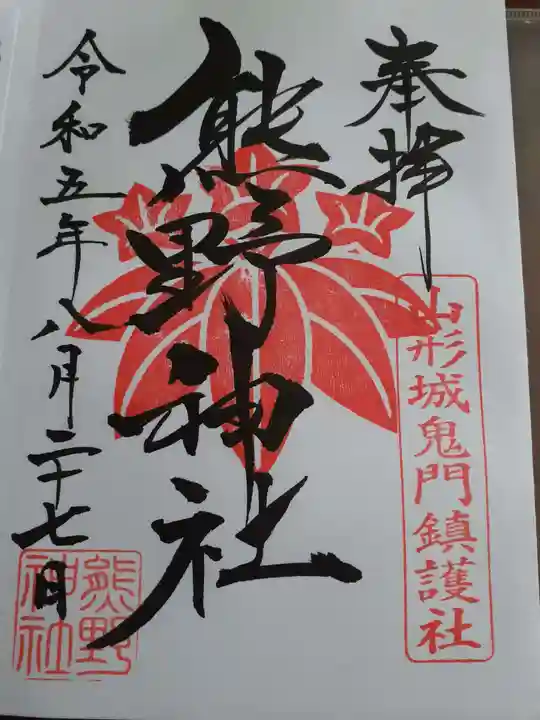 奉拝
山形城鬼門鎮護社
熊野神社
令和五年八月二十七日
熊野神社